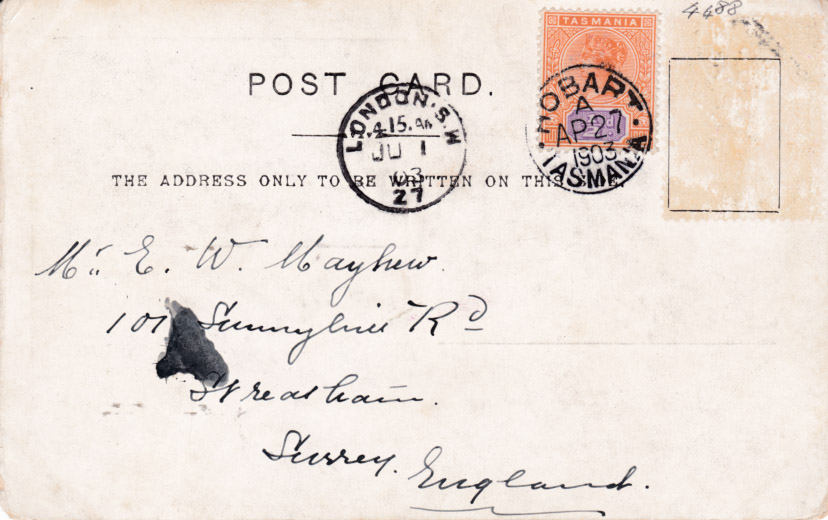 4488
TASMANIA
POST CARD.
HOBART
A
AP 27
1903
TASMANIA
LONDON.S.W
4.15.AM
JU 1
03
27
THE ADDRESS ONLY TO BE WRITTEN ON THIS SIDE.
Mr. E. W. Mayhew.
101 Sunnyhill Rd
Streatham.
Surrey. England.